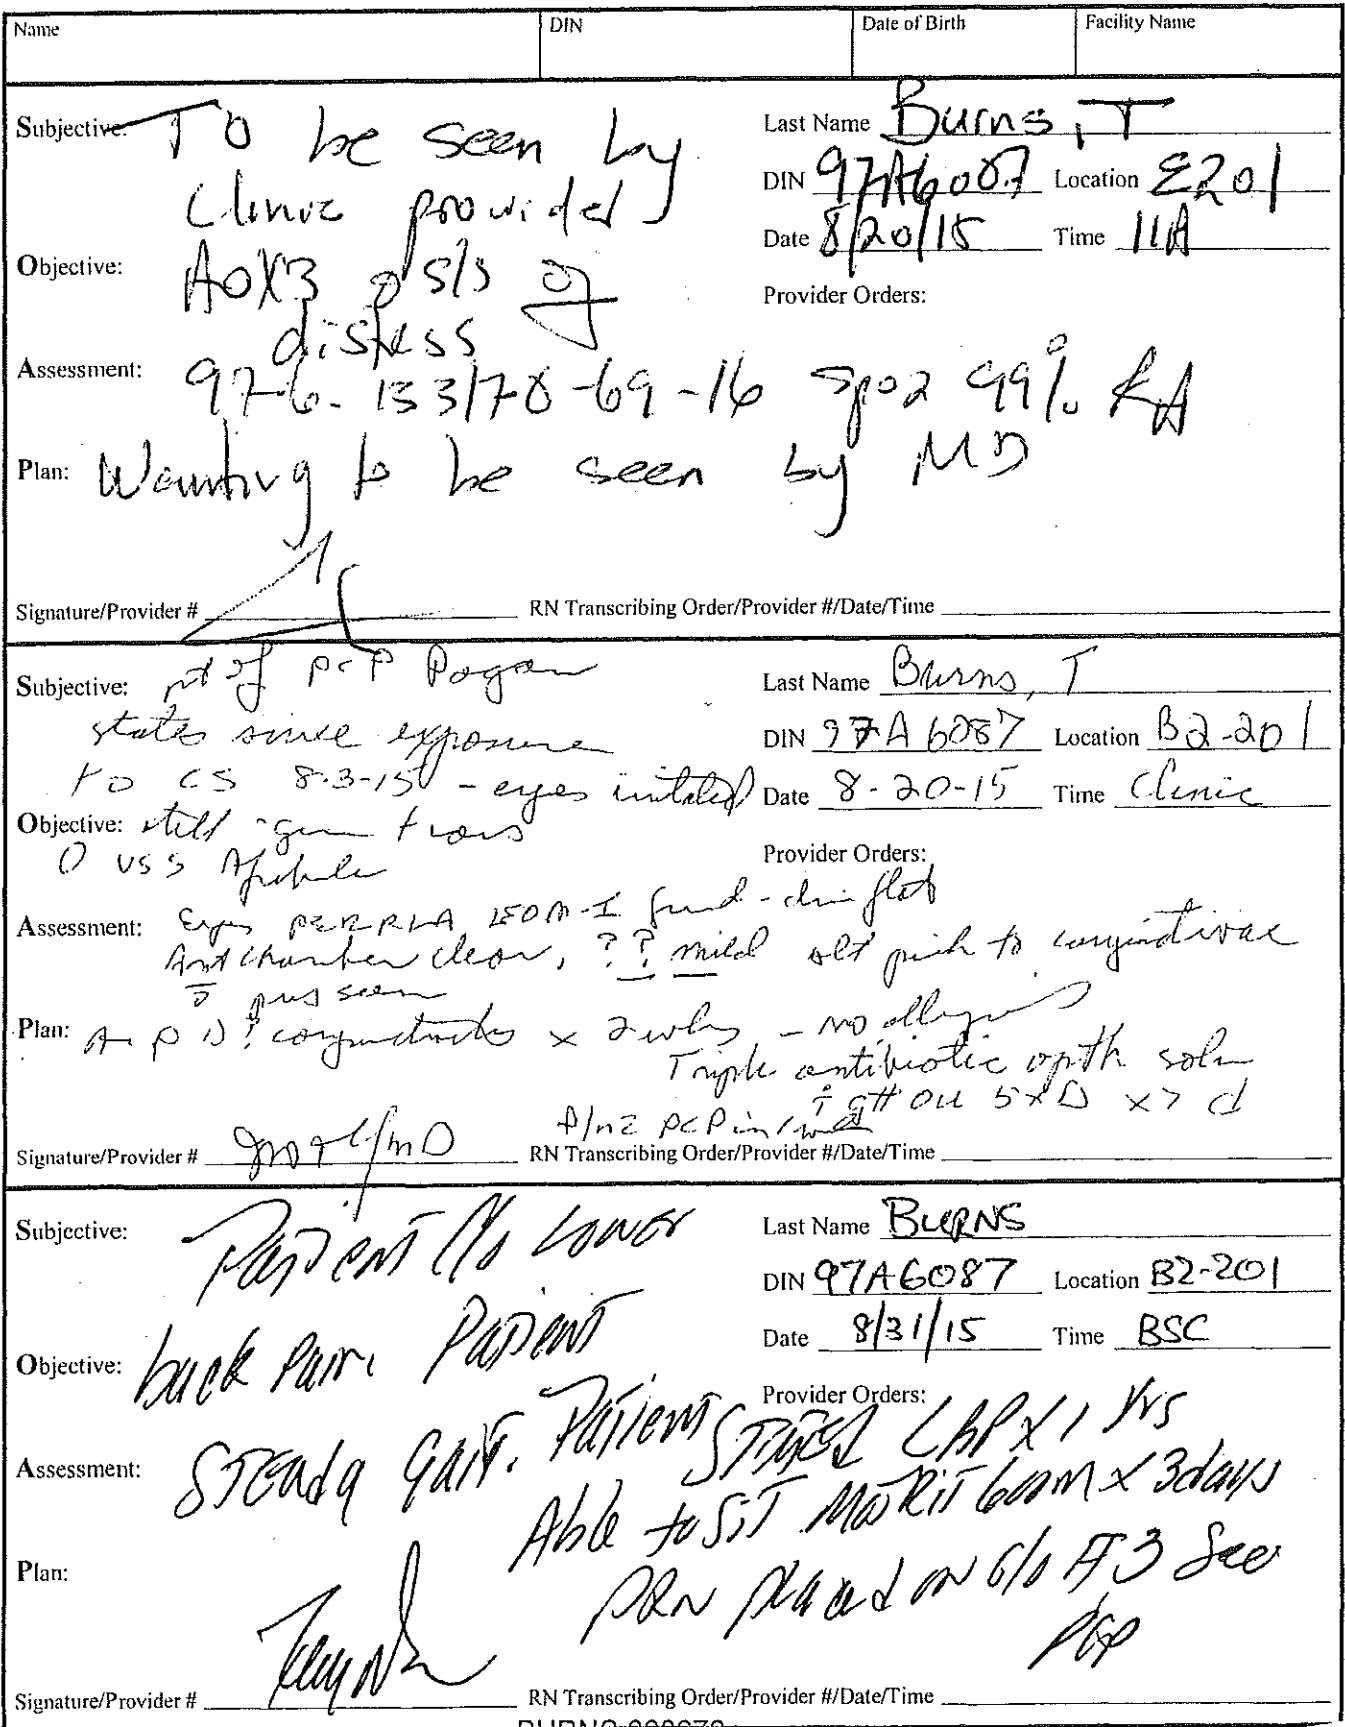 Name DIN Date of Birth Facility Name
Subjective: To be seen by
Last Name Burns, T
clinic provider
DIN 97A6087 Location E201
Date 8/20/15 Time 11A
Objective: AOX3 s/s of
distress
Provider Orders:
Assessment: 97-6- 133/78-69-16 Spo2 99% RA
Plan: Waiting to be seen by MD
Signature/Provider # RN Transcribing Order/Provider #/Date/Time
Subjective: pt of PCP
Last Name Burns, T
states since exposure
DIN 97A6087 Location B2-201
to CS 8-3-15 - eyes irritated
Date 8-20-15 Time Clinic
Objective: still
O VSS Afebrile
Provider Orders:
Assessment: Eyes PERRLA EOM-I
Ant chamber clear, ?? mild pink to conjunctivae
pus seen
Plan: conjunctivitis x 2 wks - no allergies
Triple antibiotic opth soln
OU 5xD x7 d
PCP
Signature/Provider # RN Transcribing Order/Provider #/Date/Time
Subjective: Patient c/o Lower
Last Name BURNS
DIN 97A6087 Location B2-201
Date 8/31/15 Time BSC
Objective: back Pain. Patient
Provider Orders:
Assessment: STeady gait. Patient STATES LBP x 1 yrs
Able to SiT MoTRiN 600m x 3days
Plan: PRN placed on c/o #3 See
PCP
Signature/Provider # RN Transcribing Order/Provider #/Date/Time